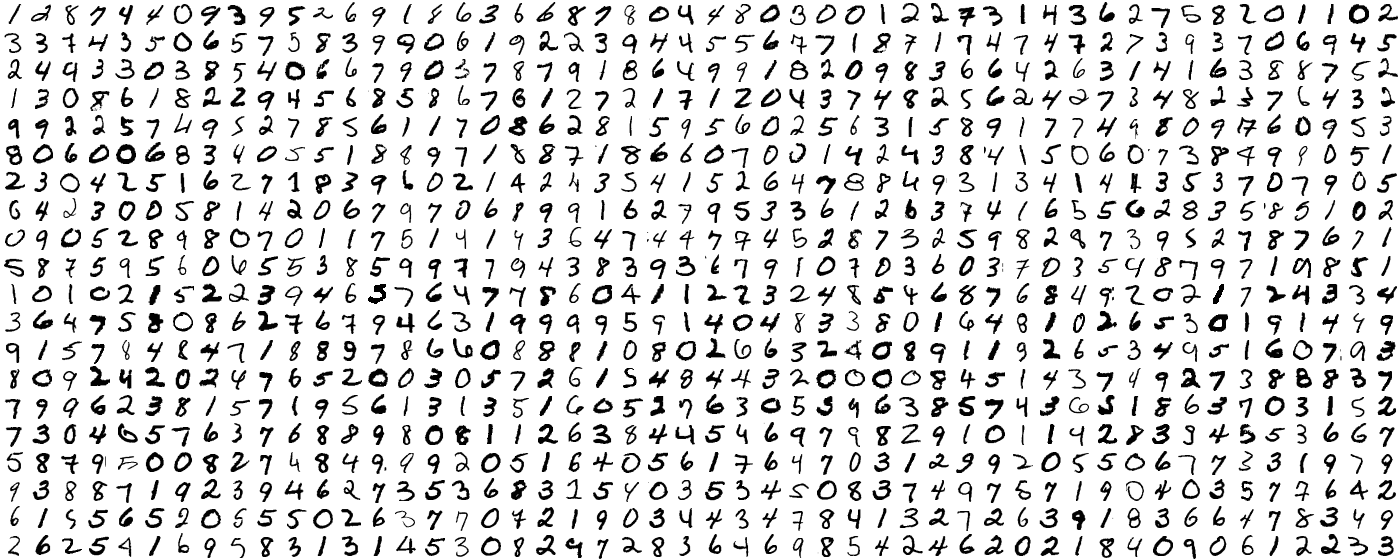 1 2 8 7 4 4 0 9 3 9 5 2 6 9 1 8 6 3 6 6 8 7 8 0 4 4 8 0 3 0 0 1 2 2 7 3 1 4 3 6 2 7 5 8 2 0 1 1 0 2
3 3 7 4 3 5 0 6 5 7 5 8 3 9 9 0 6 1 9 2 2 3 9 4 4 5 5 6 7 7 1 8 7 1 7 4 7 4 7 2 7 3 9 3 7 0 6 9 4 5
2 4 9 3 3 0 3 8 5 4 0 6 6 7 9 0 3 7 8 7 9 1 8 6 4 9 9 1 8 2 0 9 8 3 6 6 4 2 6 3 1 4 1 6 3 8 8 7 5 2
1 3 0 8 6 1 8 2 2 9 4 5 6 8 5 8 6 7 6 1 2 7 2 1 7 1 2 0 4 3 7 4 8 2 5 6 2 4 2 7 3 4 8 2 3 7 6 4 3 2
9 9 2 2 5 7 4 9 5 2 7 8 5 6 1 1 7 0 8 6 2 8 1 5 9 5 6 0 2 5 6 3 1 5 8 9 1 7 7 4 9 8 0 9 17 6 0 9 5 3
8 0 6 0 0 6 8 3 4 0 5 5 1 8 8 9 7 1 8 8 7 1 8 6 6 0 7 0 0 1 4 2 4 3 8 4 1 5 0 6 0 7 3 8 4 9 9 0 5 1
2 3 0 4 2 5 1 6 2 7 1 8 3 9 6 0 2 1 4 2 4 3 5 4 1 5 2 6 4 7 8 8 4 9 3 1 3 4 1 4 4 3 5 3 7 0 7 9 0 5
6 4 2 3 0 0 5 8 1 4 2 0 6 7 9 7 0 6 8 9 9 1 6 2 7 9 5 3 3 6 1 2 6 3 7 4 1 6 5 5 6 2 8 3 5 8 5 1 0 2
0 9 0 5 2 8 9 8 0 7 0 1 1 7 5 1 4 1 4 3 6 4 7 4 4 7 7 4 5 2 8 7 3 2 5 9 8 2 8 7 3 9 5 2 7 8 7 6 7 1
5 8 7 5 9 5 6 0 6 5 5 3 8 5 9 9 7 7 9 4 3 8 3 9 3 6 7 9 1 0 7 0 3 6 0 3 7 0 3 5 4 8 7 9 7 1 9 8 5 1
1 0 1 0 2 1 5 2 2 3 9 4 6 5 7 6 4 7 7 8 6 0 4 1 1 2 2 3 2 4 8 5 4 6 8 7 6 8 4 9 2 0 2 1 7 2 4 3 3 4
3 6 4 7 5 8 0 8 6 2 7 6 7 9 4 6 3 1 9 9 9 9 5 9 1 4 0 4 8 3 3 8 0 1 6 4 8 1 0 2 6 5 3 0 1 9 1 4 4 9
9 1 5 7 8 4 8 4 7 1 8 8 9 7 8 6 6 0 8 8 8 1 0 8 0 2 6 6 3 2 4 0 8 9 1 1 9 2 6 5 3 4 9 5 1 6 0 7 9 3
8 0 9 2 4 2 0 2 4 7 6 5 2 0 0 3 0 5 7 2 6 1 5 4 8 4 4 3 2 0 0 0 0 8 4 5 1 4 3 7 4 9 2 7 3 8 8 8 3 7
7 9 9 6 2 3 8 1 5 7 1 9 5 6 1 3 1 3 5 1 6 0 5 2 7 6 3 0 5 3 9 6 3 8 5 7 4 3 6 5 1 8 6 3 7 0 3 1 5 2
7 3 0 4 6 5 7 6 3 7 6 8 8 9 8 0 8 1 1 2 6 3 8 4 4 5 4 6 9 7 9 8 2 9 1 0 1 1 4 2 8 3 9 4 5 5 3 6 6 7
5 8 7 9 5 0 0 8 2 7 4 8 4 9 9 9 2 0 5 1 6 4 0 5 6 1 7 6 4 7 0 3 1 2 9 9 2 0 5 5 0 6 7 7 3 3 1 9 7 9
9 3 8 8 7 1 9 2 3 9 4 6 2 7 3 5 3 6 8 3 2 5 4 0 3 5 3 4 5 0 8 3 7 4 9 7 5 7 1 9 0 4 0 3 5 7 7 6 4 2
6 1 5 5 6 5 2 0 5 5 5 0 2 6 3 7 7 0 7 2 1 9 0 3 4 4 3 4 7 8 4 1 3 2 7 2 6 3 9 1 8 3 6 6 4 7 8 3 4 9
2 6 2 5 4 1 6 9 5 8 3 1 3 1 4 5 3 0 8 2 9 7 2 8 3 6 4 6 9 8 5 4 2 4 6 2 0 2 1 8 4 0 9 0 6 1 2 2 3 3